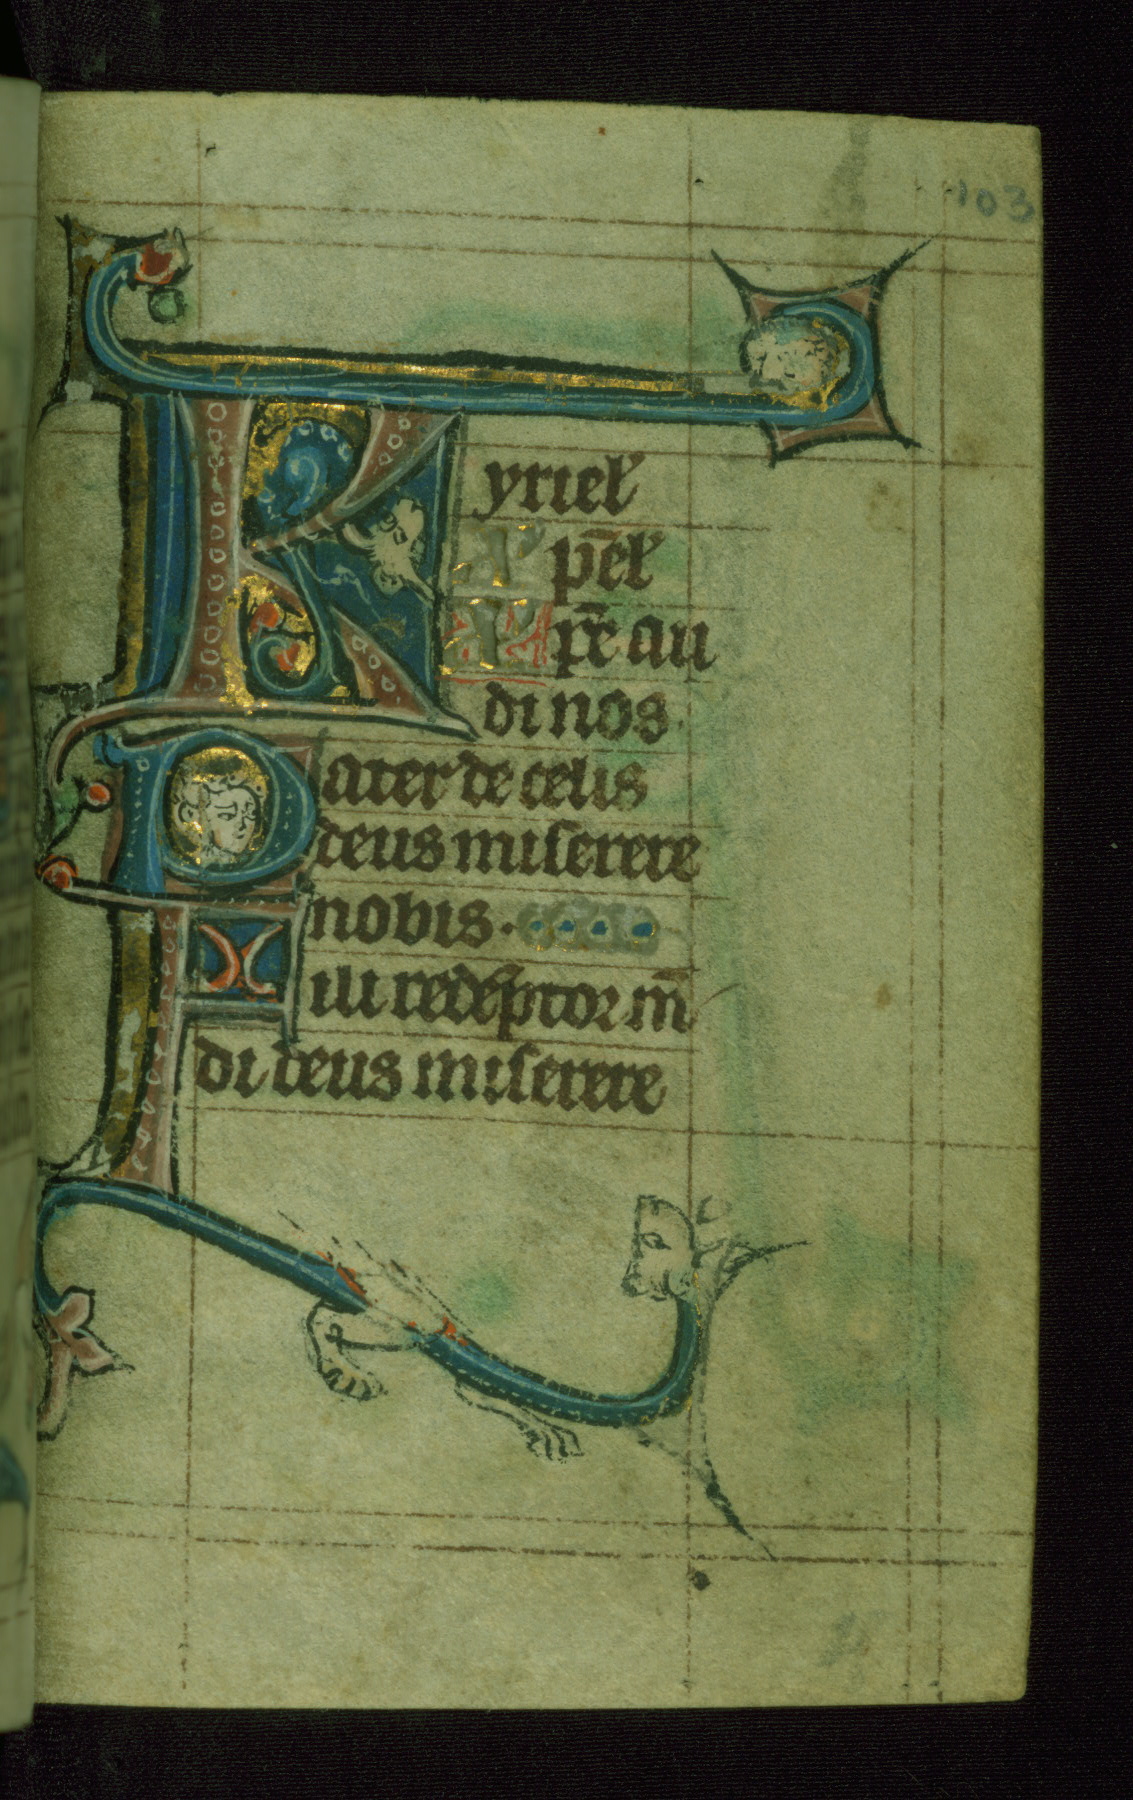 103
Kyriel'
X' p̄el'
X' p̄e au
di nos
Pater de celis
deus miserere
nobis.
Fili redēptor m̄
di deus miserere